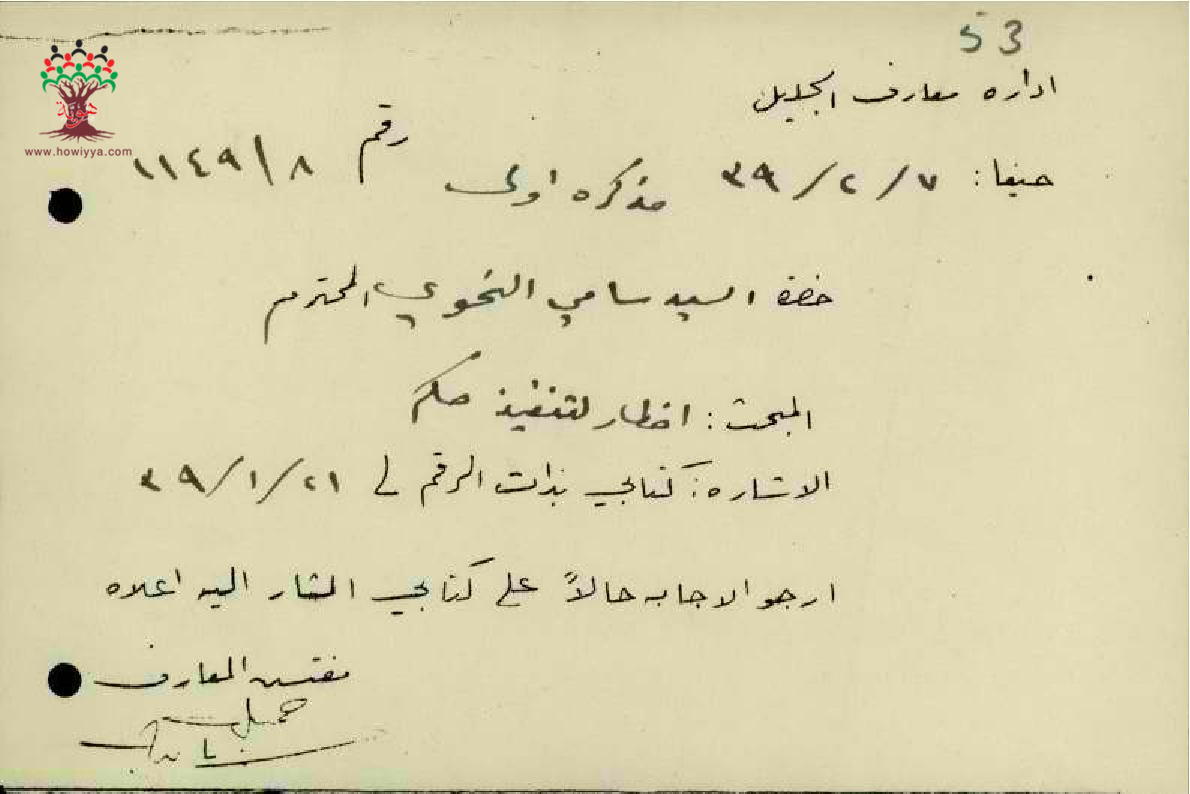 53
اداره معارف الجليل
هوية
www.howiyya.com
رقم ١١٤٩/٨
حيفا: ٧/٢/٣٩ مذكره اولى
حضرة السيد سامي النحوي المحترم
المبحث: اخطار لتنفيذ حكم
الاشاره: كتابي بذات الرقم في ٢١/١/٣٩
ارجو الاجابه حالاً على كتابي المشار اليه اعلاه
مفتش المعارف
جميل